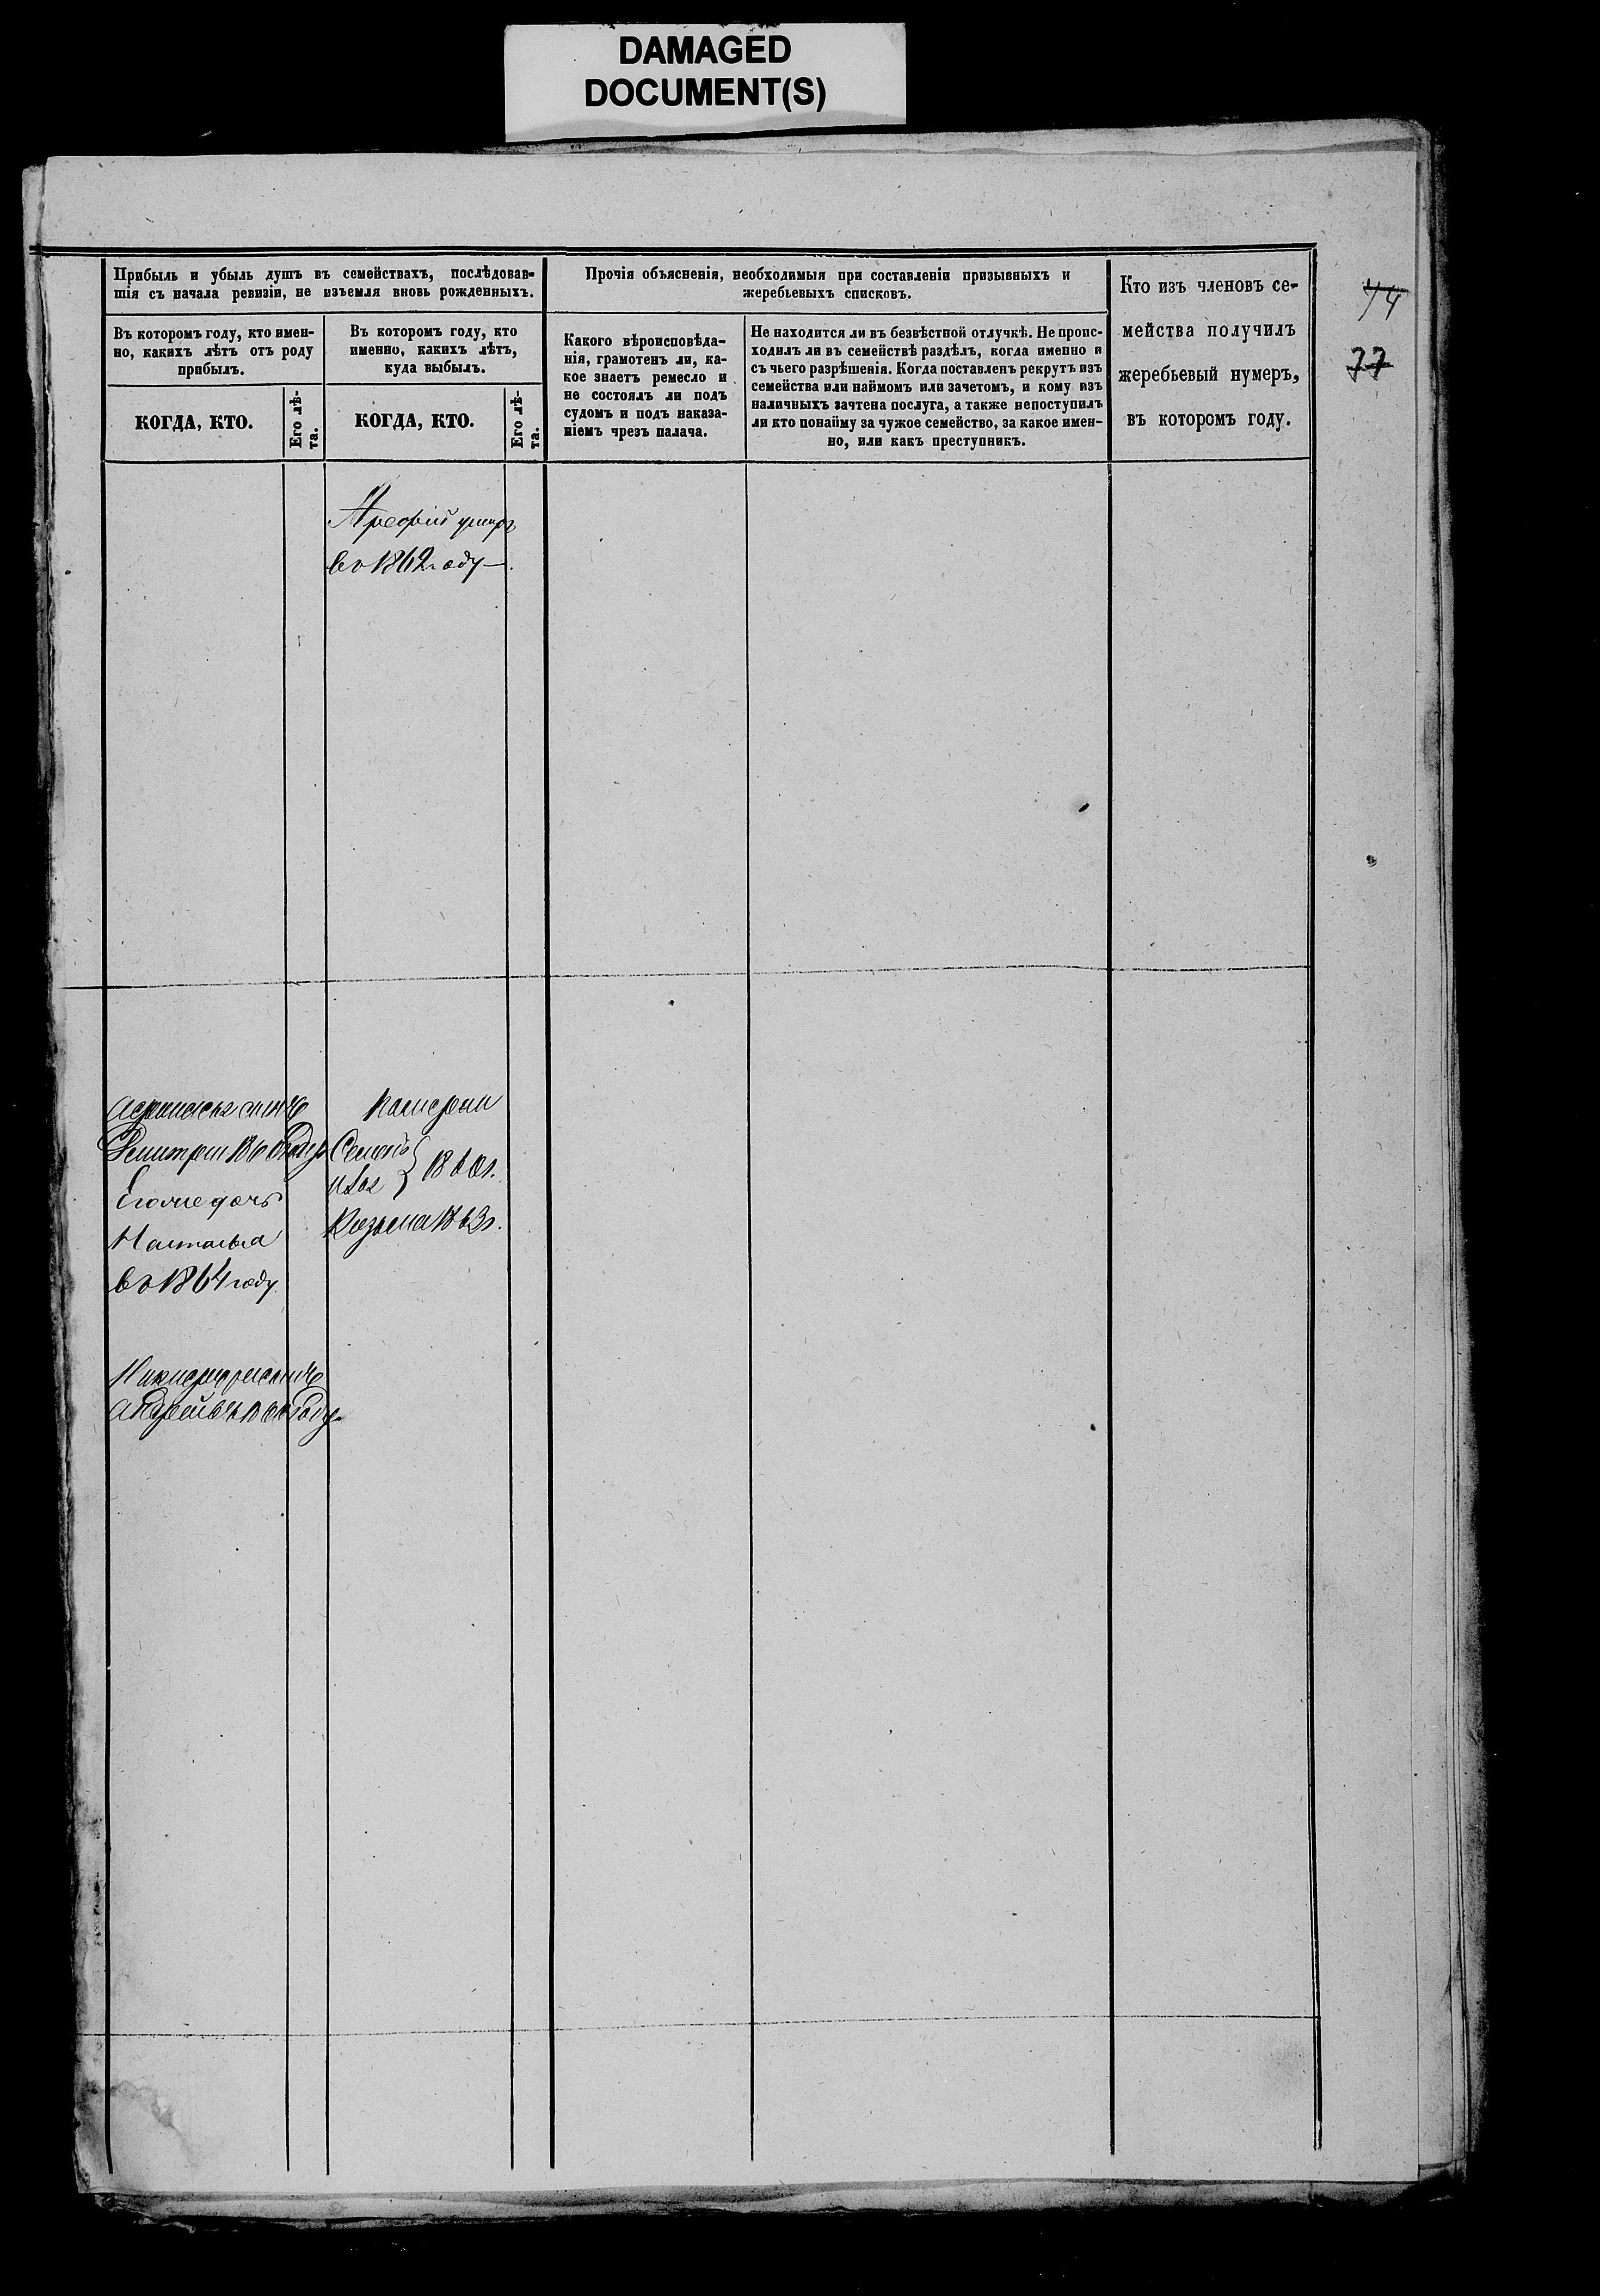 DAMAGED
DOCUMENT(S)
Прибыль и убыль душъ въ семействахъ, послѣдовав-
шія съ начала ревизіи, не изъемля вновь рожденныхъ.
Въ которомъ году, кто имен-
но, какихъ лѣтъ отъ роду
прибылъ.
КОГДА, КТО.
Его лѣ-
та.
Въ которомъ году, кто
именно, какихъ лѣтъ,
куда выбылъ.
КОГДА, КТО.
Его лѣ-
та.
Прочія объясненія, необходимыя при составленіи призывныхъ и
жеребьевыхъ списковъ.
Какого вѣроисповѣда-
нія, грамотенъ ли, ка-
кое знаетъ ремесло и
не состоялъ ли подъ
судомъ и подъ наказа-
ніемъ чрезъ палача.
Не находится ли въ безвѣстной отлучкѣ. Не проис-
ходилъ ли въ семействѣ раздѣлъ, когда именно и
съ чьего разрѣшенія. Когда поставленъ рекрутъ изъ
семейства или наймомъ или зачетомъ, и кому изъ
наличныхъ зачтена послуга, а также непоступилъ
ли кто понайму за чужое семейство, за какое имен-
но, или какъ преступникъ.
Кто изъ членовъ се-
мейства получилъ
жеребьевый нумеръ,
въ которомъ году.
74
77
умеръ
въ 1862 году
Семенъ
1860г.
Козьма 1863г.
Дмитрии 1860 году
Егоже дочь
Наталья
въ 1864 году
Андрей въ году